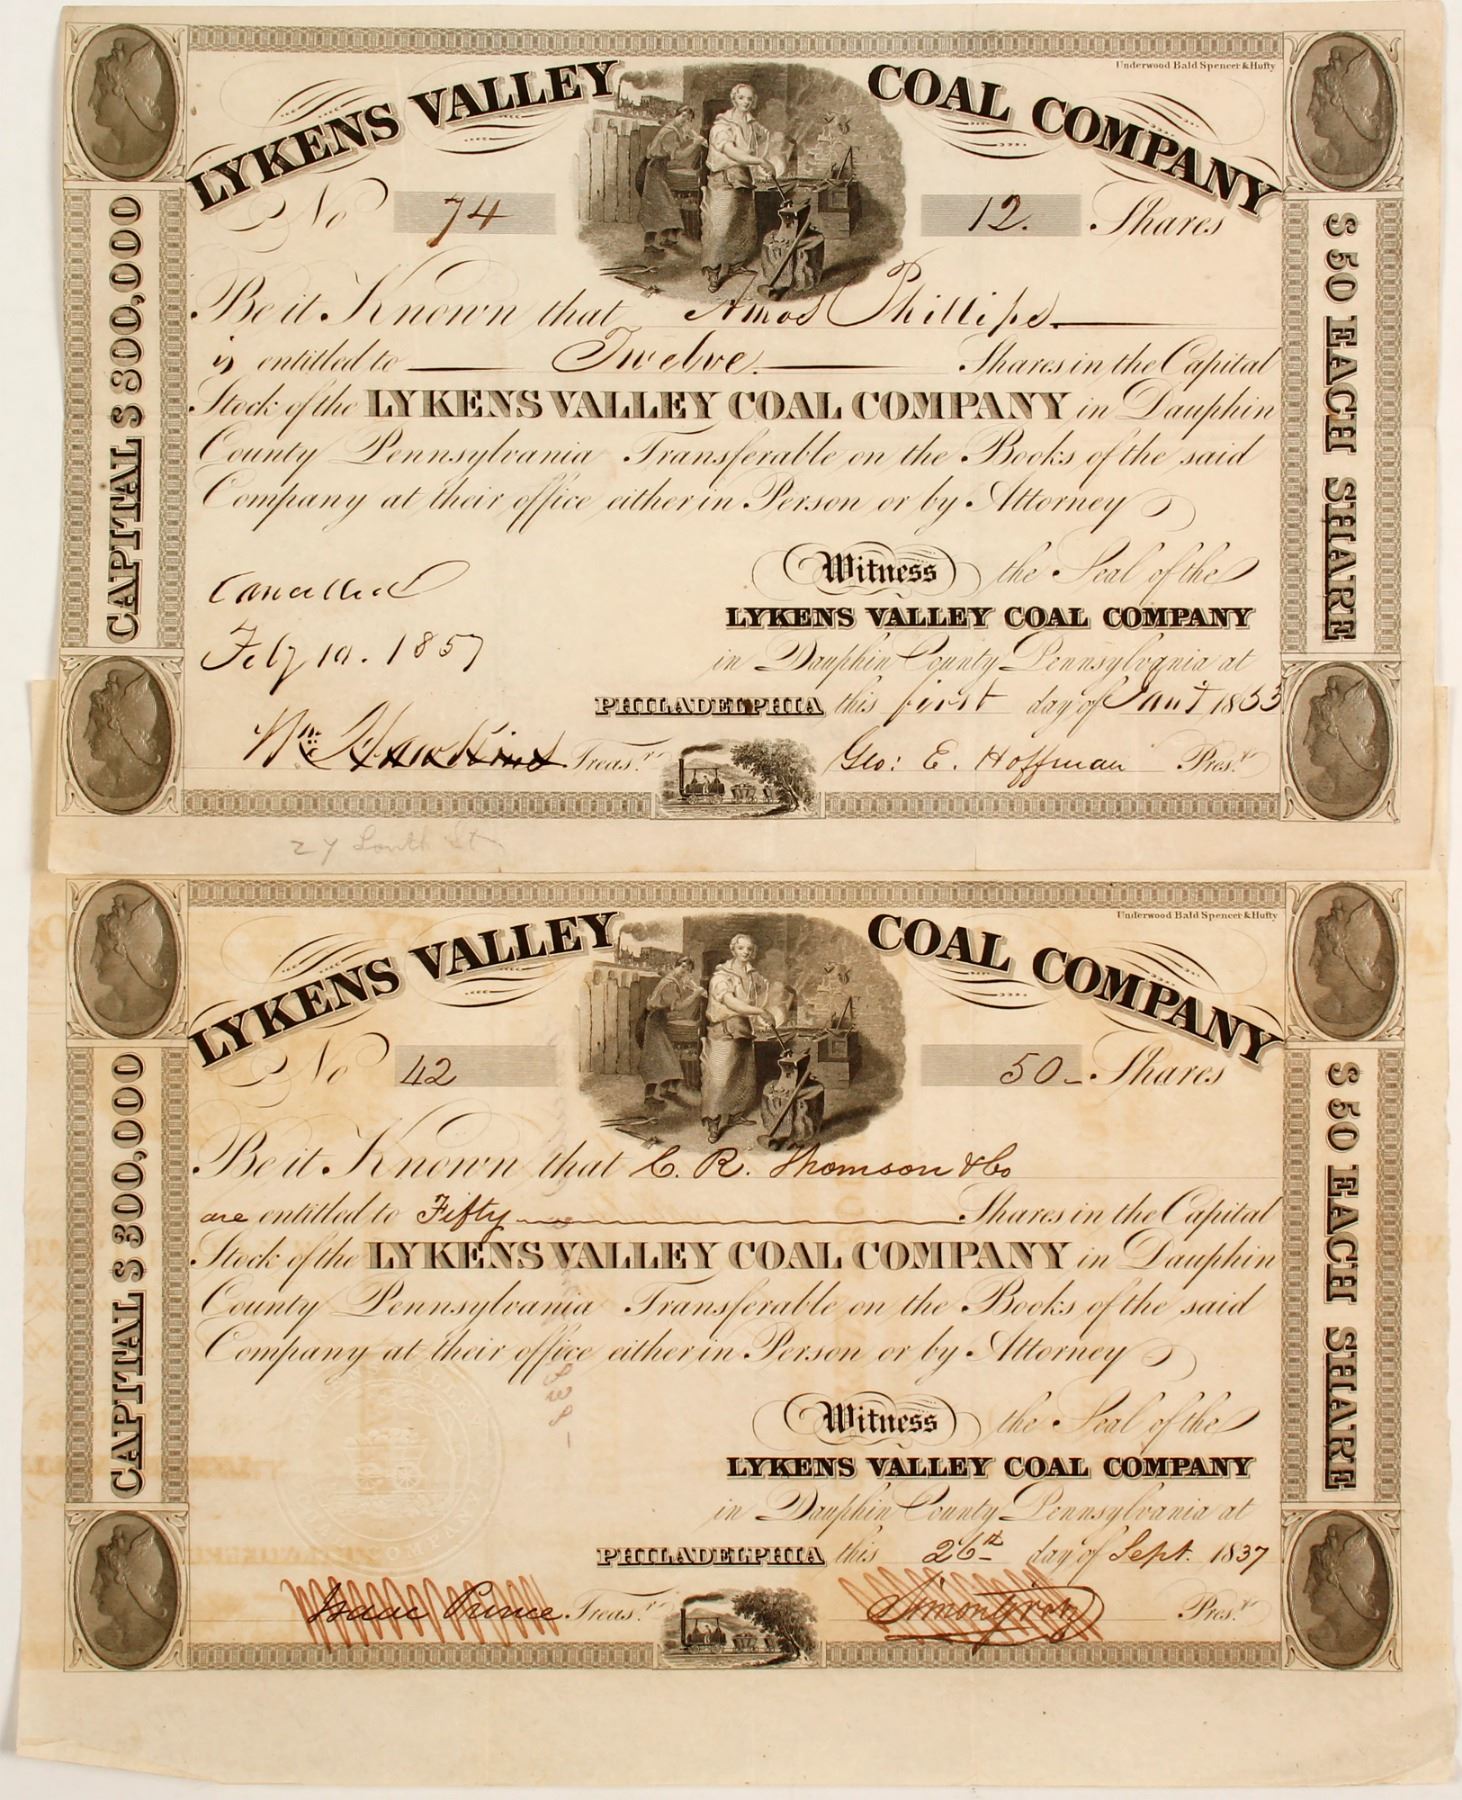 Underwood Bald Spencer & Hufty
LYKENS VALLEY COAL COMPANY
No 74 12. Shares
Be it Known that Amos Phillips
is entitled to Twelve. Shares in the Capital
Stock of the LYKENS VALLEY COAL COMPANY in Dauphin
County Pennsylvania Transferable on the Books of the said
Company at their office either in Person or by Attorney
Witness the Seal of the
LYKENS VALLEY COAL COMPANY
in Dauphin County Pennsylvania at
PHILADELPHIA this first day of Jany 1853
Cancelled
Feby 10. 1857
Wm Hawkins Treasr.
Geo: E. Hoffman Prest.
CAPITAL $300,000
$50 EACH SHARE
27 South St
Underwood Bald Spencer & Hufty
LYKENS VALLEY COAL COMPANY
No 42 50 Shares
Be it Known that C. R. Thomson & Co
are entitled to Fifty Shares in the Capital
Stock of the LYKENS VALLEY COAL COMPANY in Dauphin
County Pennsylvania Transferable on the Books of the said
Company at their office either in Person or by Attorney
Witness the Seal of the
LYKENS VALLEY COAL COMPANY
in Dauphin County Pennsylvania at
PHILADELPHIA this 26th day of Sept. 1837
Isaac Prince Treasr.
Simon Gratz Prest.
CAPITAL $300,000
$50 EACH SHARE